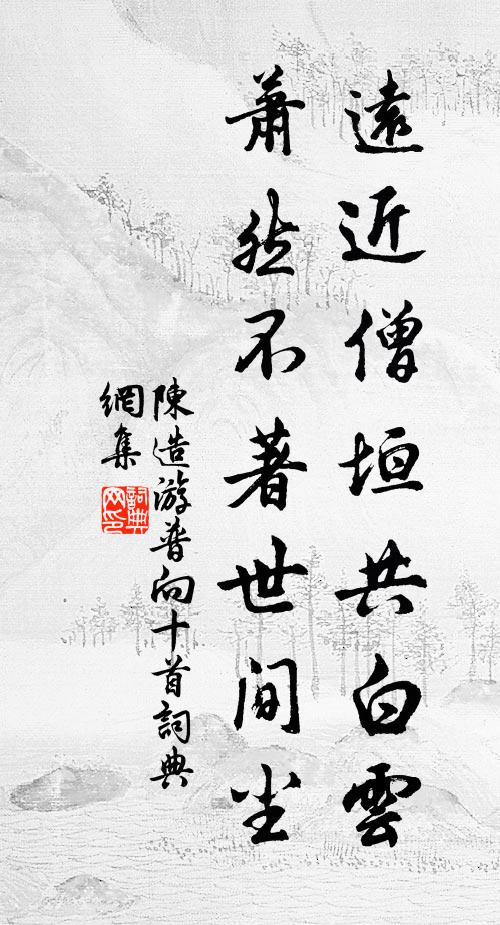 遠近僧垣共白雲
蕭然不著世間尘
陳造游普向十首詞典
網集
詞典网印